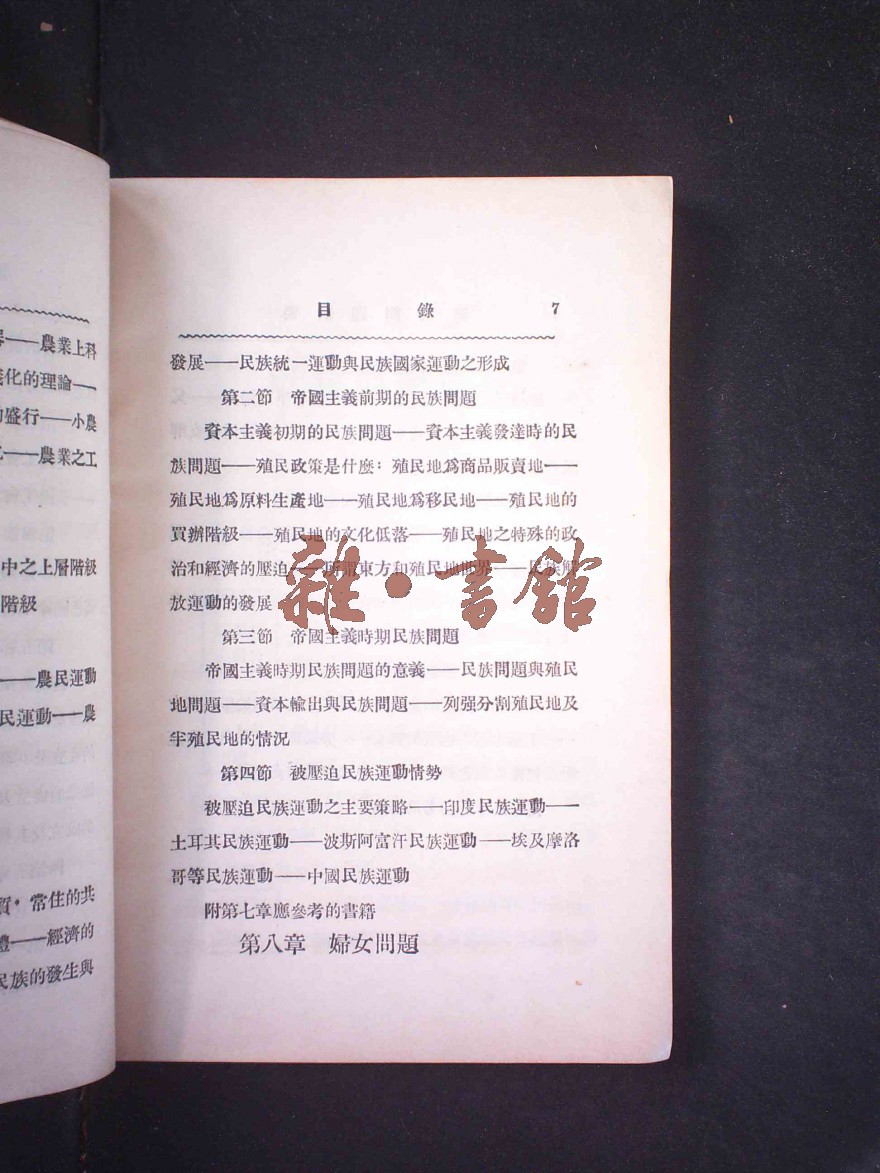 —農業上科
化的理論—
盛行——小農
——農業之工
中之上層階級
階級
——農民運動
民運動——農
常住的共
——經濟的
民族的發生與
目 錄 7
發展——民族統一運動與民族國家運動之形成
第二節 帝國主義前期的民族問題
資本主義初期的民族問題——資本主義發達時的民
族問題——殖民政策是什麼：殖民地爲商品販賣地——
殖民地爲原料生產地——殖民地爲移民地——殖民地的
買辦階級——殖民地的文化低落——殖民地之特殊的政
治和經濟的壓迫——所謂東方和殖民地世界——民族解
放運動的發展
第三節 帝國主義時期民族問題
帝國主義時期民族問題的意義——民族問題與殖民
地問題——資本輸出與民族問題——列强分割殖民地及
半殖民地的情況
第四節 被壓迫民族運動情勢
被壓迫民族運動之主要策略——印度民族運動——
土耳其民族運動——波斯阿富汗民族運動——埃及摩洛
哥等民族運動——中國民族運動
附第七章應參考的書籍
第八章 婦女問題
雜·書館